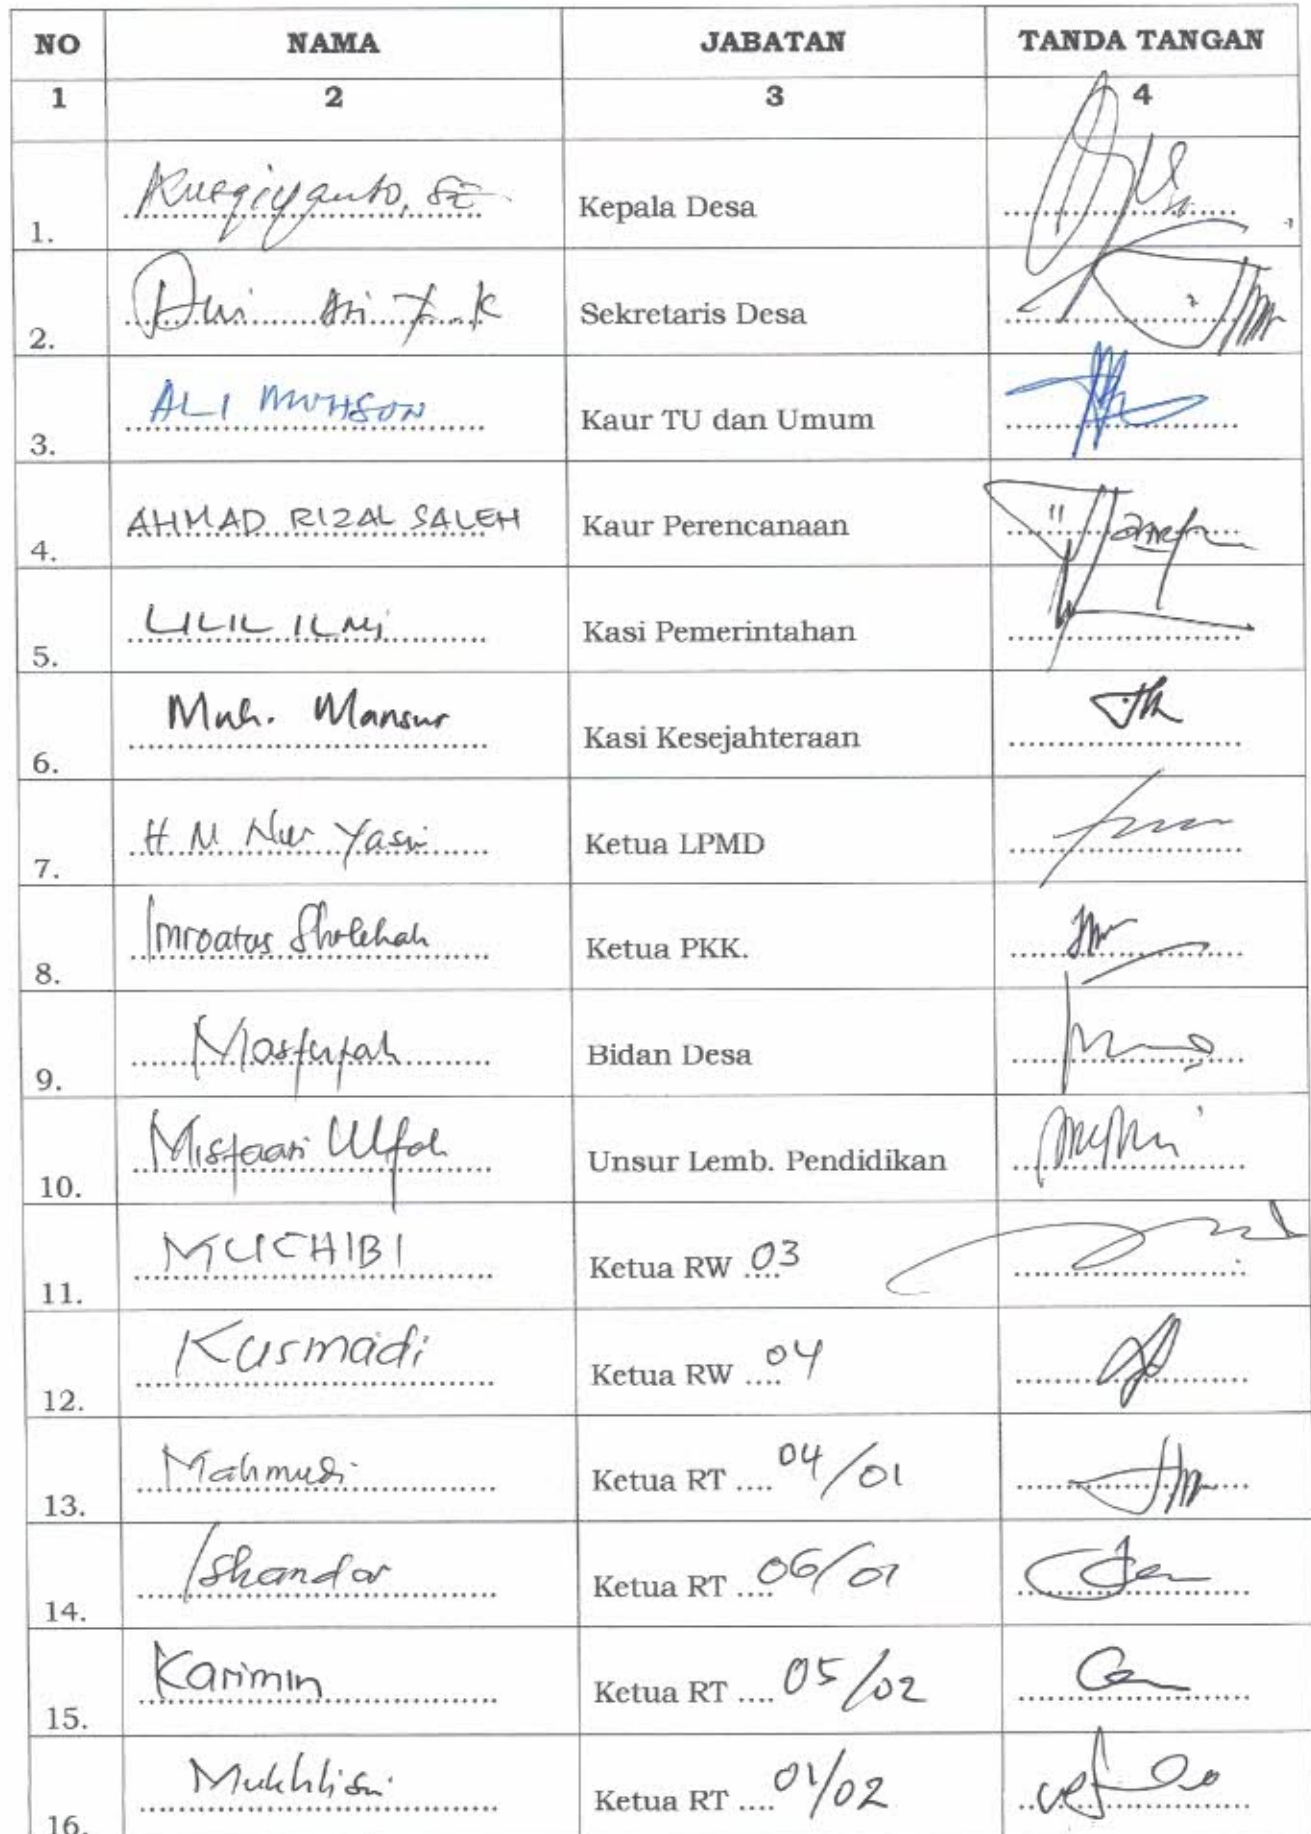 NO NAMA JABATAN TANDA TANGAN
1 2 3 4
1. Kusgiyanto, SE Kepala Desa
2. Dwi Ari Y. K Sekretaris Desa
3. ALI MUHSON Kaur TU dan Umum
4. AHMAD RIZAL SALEH Kaur Perencanaan
5. LILIL ILMi Kasi Pemerintahan
6. Muh. Mansur Kasi Kesejahteraan
7. H M Nur Yasin Ketua LPMD
8. Imroatus Sholehah Ketua PKK.
9. Masfufah Bidan Desa
10. Ulfah Unsur Lemb. Pendidikan
11. MUCHIBI Ketua RW 03
12. Kusmadi Ketua RW .... 04
13. Mahmudi Ketua RT .... 04/01
14. Iskandar Ketua RT .... 06/01
15. Karimin Ketua RT .... 05/02
16. Mukhlisin Ketua RT .... 01/02